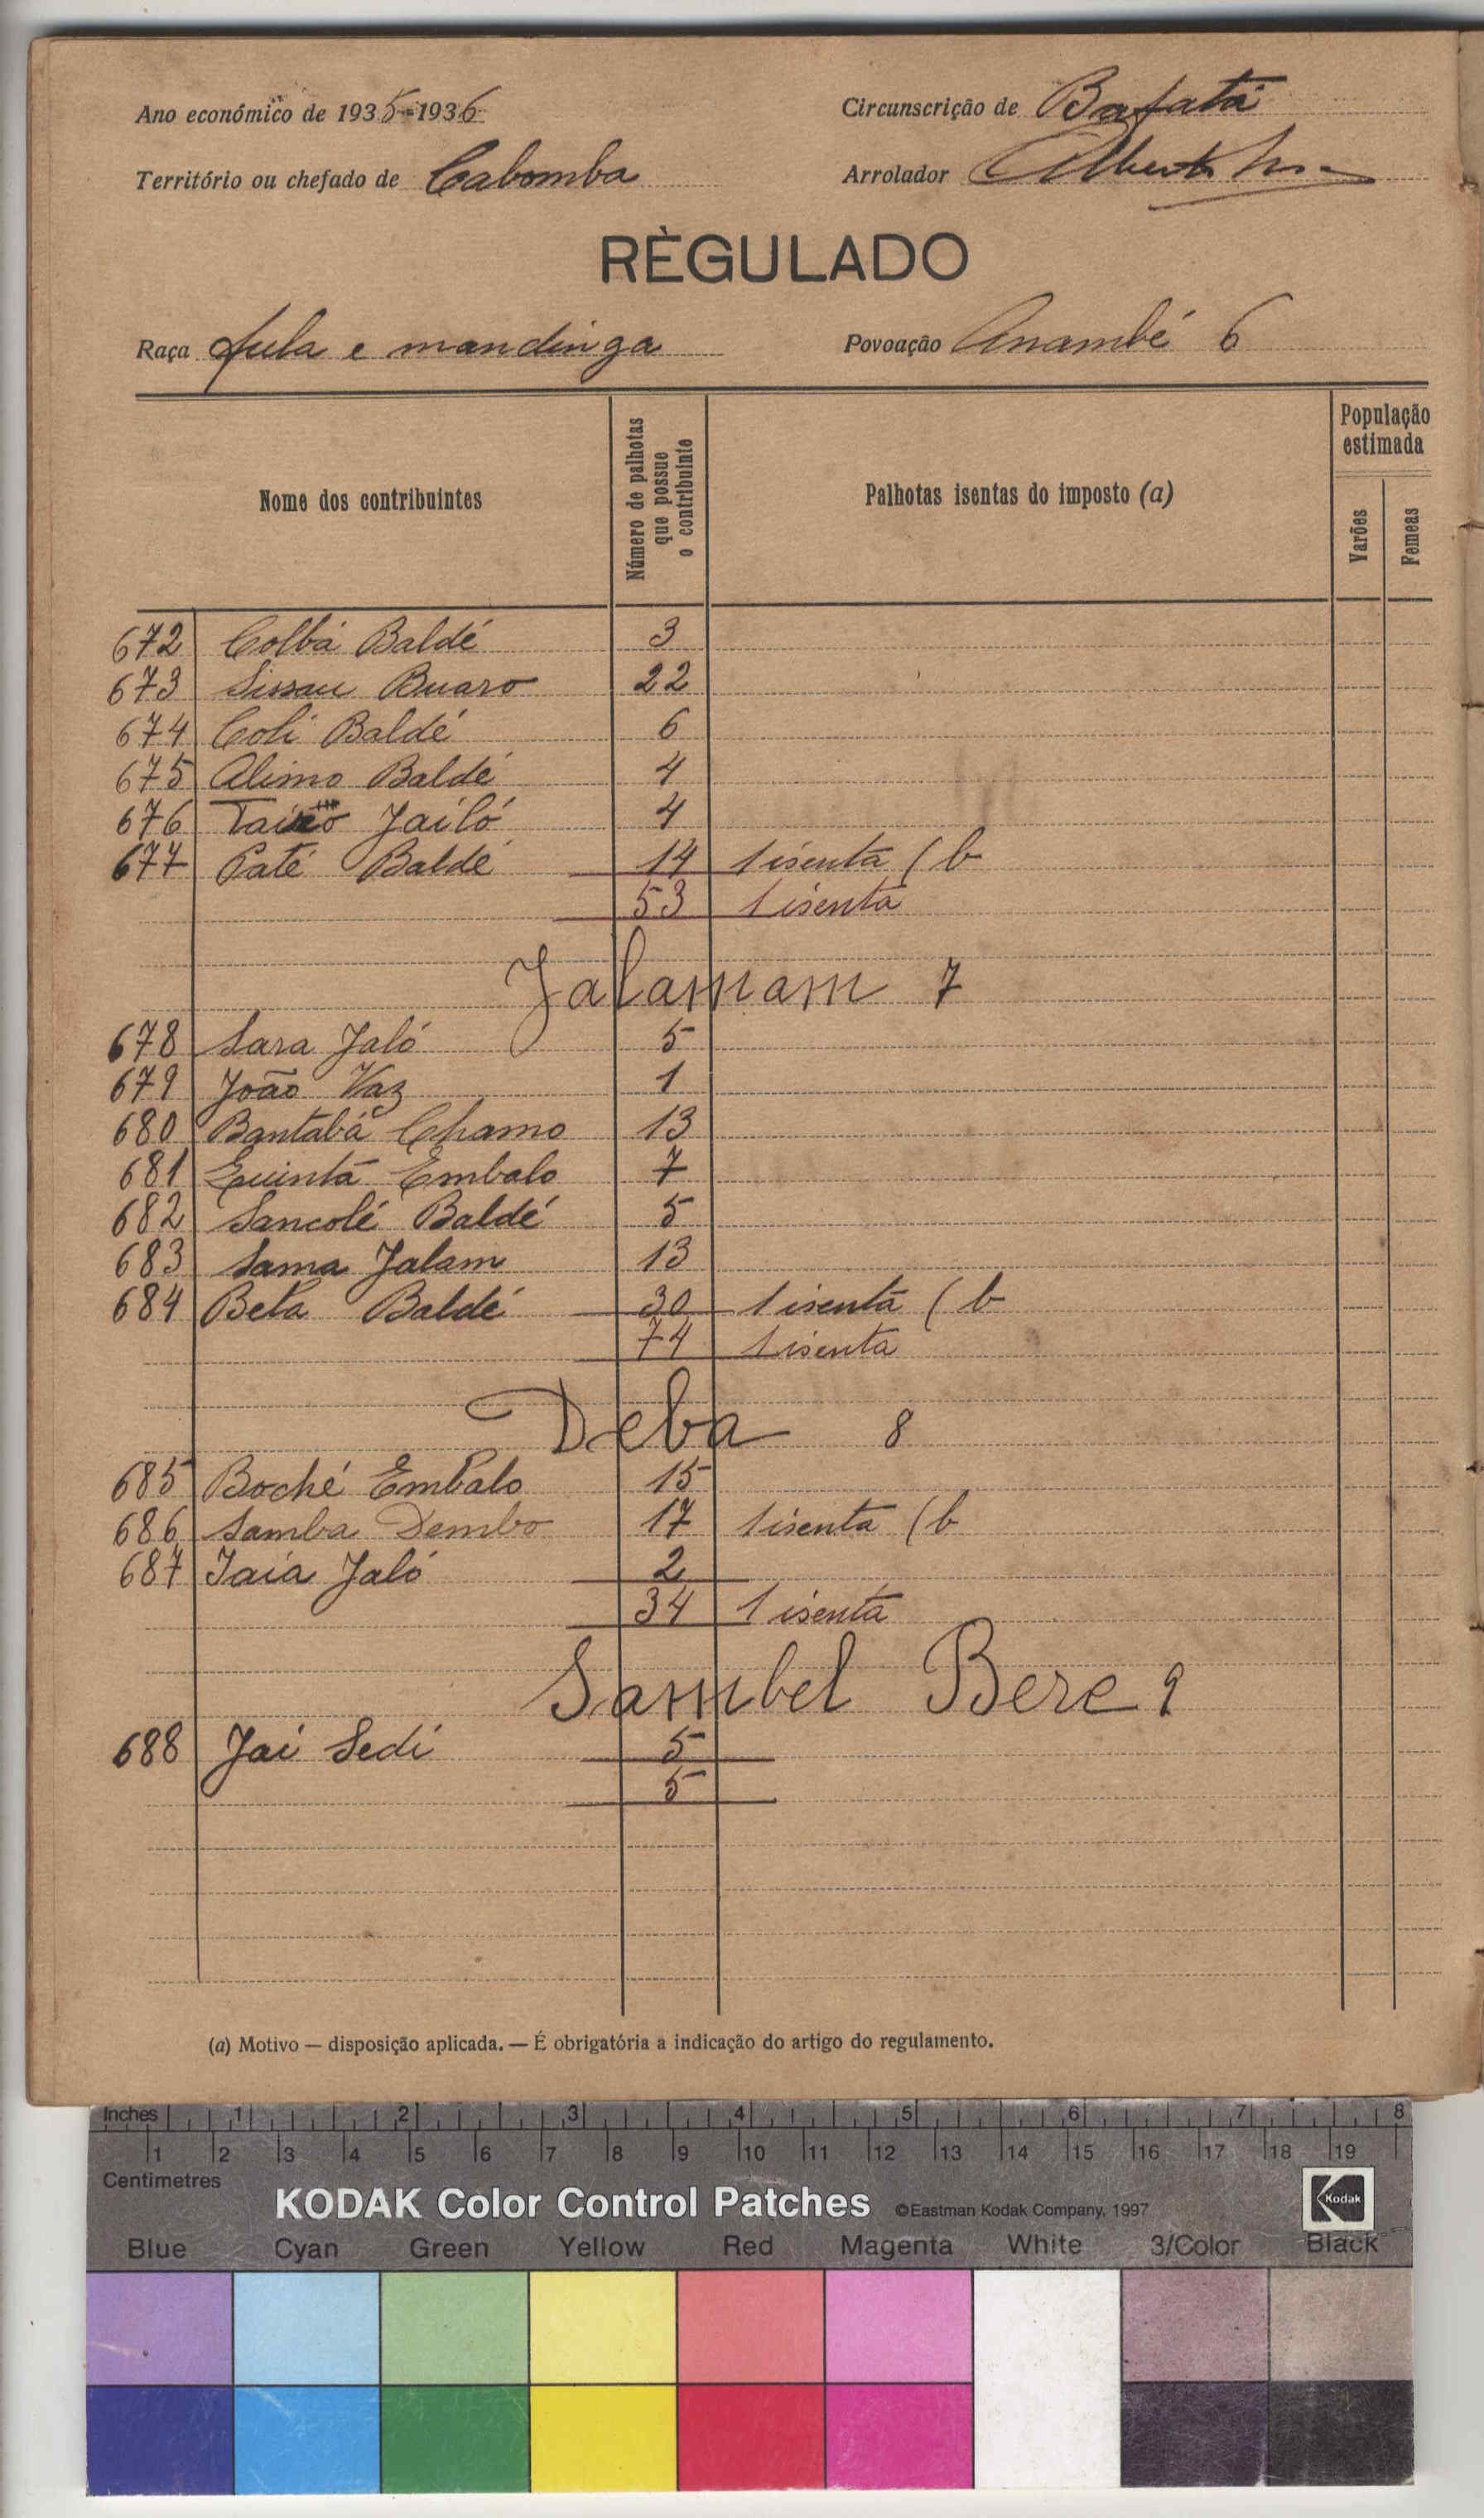 Ano económico de 1935-1936
Circunscrição de Bafatá
Território ou chefado de Cabomba
Arrolador Albert
RÈGULADO
Raça fula e mandinga
Povoação Anambé 6
Nome dos contribuintes
Número de palhotas que possue o contribuinte
Palhotas isentas do imposto (a)
População estimada
Varões
Femeas
672 Colbá Baldé 3
673 Sissau Buaro 22
674 Coli Baldé 6
675 Alimo Baldé 4
676 Jailó 4
677 Paté Baldé 14 1 isenta (b
53 1 isenta
Jalamam 7
678 Sara Jaló 5
679 João Vaz 1
680 Bantabá Chamo 13
681 Quintá Embalo 7
682 Sancolé Baldé 5
683 Sama Jalam 13
684 Beta Baldé 30 1 isenta (b
74 1 isenta
Deba 8
685 Boché Embalo 15
686 Samba Dembo 17 1 isenta (b
687 Iaia Jaló 2
34 1 isenta
Sambel Bere 9
688 Jai Sedi 5
5
(a) Motivo — disposição aplicada. — É obrigatória a indicação do artigo do regulamento.
Inches 1 2 3 4 5 6 7 8
1 2 3 4 5 6 7 8 9 10 11 12 13 14 15 16 17 18 19
Centimetres
KODAK Color Control Patches ©Eastman Kodak Company, 1997 Kodak
Blue Cyan Green Yellow Red Magenta White 3/Color Black